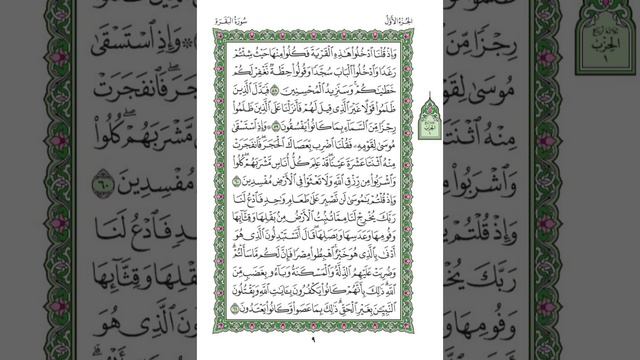 الجزء الأول
سورة البقرة
وَإِذْ قُلْنَا ادْخُلُوا هَٰذِهِ الْقَرْيَةَ فَكُلُوا مِنْهَا حَيْثُ شِئْتُمْ
رَغَدًا وَادْخُلُوا الْبَابَ سُجَّدًا وَقُولُوا حِطَّةٌ نَّغْفِرْ لَكُمْ
خَطَايَاكُمْ وَسَنَزِيدُ الْمُحْسِنِينَ ٥٨ فَبَدَّلَ الَّذِينَ
ظَلَمُوا قَوْلًا غَيْرَ الَّذِي قِيلَ لَهُمْ فَأَنزَلْنَا عَلَى الَّذِينَ ظَلَمُوا
رِجْزًا مِّنَ السَّمَاءِ بِمَا كَانُوا يَفْسُقُونَ ٥٩ ۞ وَإِذِ اسْتَسْقَىٰ
مُوسَىٰ لِقَوْمِهِ فَقُلْنَا اضْرِب بِّعَصَاكَ الْحَجَرَ فَانفَجَرَتْ
مِنْهُ اثْنَتَا عَشْرَةَ عَيْنًا قَدْ عَلِمَ كُلُّ أُنَاسٍ مَّشْرَبَهُمْ كُلُوا
وَاشْرَبُوا مِن رِّزْقِ اللَّهِ وَلَا تَعْثَوْا فِي الْأَرْضِ مُفْسِدِينَ ٦٠
وَإِذْ قُلْتُمْ يَا مُوسَىٰ لَن نَّصْبِرَ عَلَىٰ طَعَامٍ وَاحِدٍ فَادْعُ لَنَا
رَبَّكَ يُخْرِجْ لَنَا مِمَّا تُنبِتُ الْأَرْضُ مِن بَقْلِهَا وَقِثَّائِهَا
وَفُومِهَا وَعَدَسِهَا وَبَصَلِهَا قَالَ أَتَسْتَبْدِلُونَ الَّذِي هُوَ
أَدْنَىٰ بِالَّذِي هُوَ خَيْرٌ اهْبِطُوا مِصْرًا فَإِنَّ لَكُم مَّا سَأَلْتُمْ
وَضُرِبَتْ عَلَيْهِمُ الذِّلَّةُ وَالْمَسْكَنَةُ وَبَاءُوا بِغَضَبٍ مِّنَ
اللَّهِ ذَٰلِكَ بِأَنَّهُمْ كَانُوا يَكْفُرُونَ بِآيَاتِ اللَّهِ وَيَقْتُلُونَ
النَّبِيِّينَ بِغَيْرِ الْحَقِّ ذَٰلِكَ بِمَا عَصَوا وَّكَانُوا يَعْتَدُونَ ٦١
٩